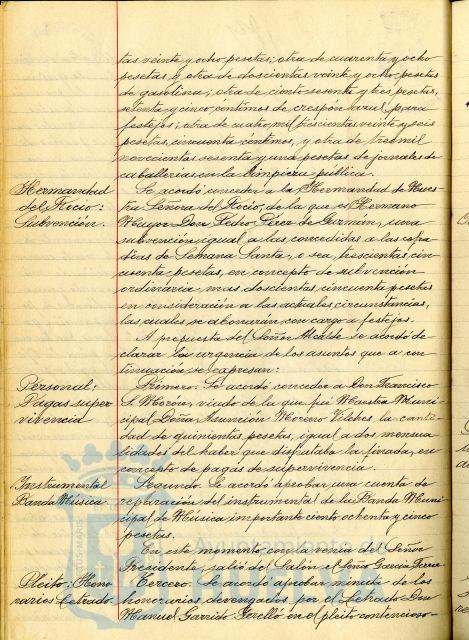 tas veinte y ocho pesetas; otra de cuarenta y ocho
pesetas y otra de doscientas veinte y ocho pesetas
de gasolina; otra de ciento sesenta y tres pesetas,
setenta y cinco céntimos de crespon azul para
festejos; otra de cuatro mil trescientas veinte y seis
pesetas, cincuenta céntimos, y otra de tres mil
novecientas sesenta y una pesetas de jornales de
caballerías en la limpieza pública.
Hermandad
del Rocio:
Subvención.
Se acordó conceder a la Hermandad de Nues-
tra Señora del Rocio, de la que es Hermano
Mayor Don Pedro Pérez de Guzmán, una
subvención igual a las concedidas a las cofra-
días de Semana Santa, o sea, trescientas cin-
cuenta pesetas, en concepto de subvención
ordinaria, mas doscientas cincuenta pesetas
en consideración a las actuales circunstancias,
las cuales se abonarán con cargo a festejos.
A propuesta del Señor Alcalde se acordó de-
clarar la urgencia de los asuntos que a con-
tinuación se expresan:
Personal:
Pagas super
vivencia
Primero: Se acordó conceder a Don Francisco
S. Morón, viudo de la que fué Maestra Muni-
cipal Doña Asunción Moreno Vilches, la canti-
dad de quinientas pesetas, igual a dos mensua-
lidades del haber que disfrutaba la finada, en
concepto de pagas de supervivencia.
Instrumental
Banda Música
Segundo. Se acordó aprobar una cuenta de
reparación del instrumental de la Banda Muni-
cipal de Música importante ciento ochenta y cinco
pesetas.
En este momento con la venia del Señor
Presidente, salió del Salón el Señor García
Pleito: Hono
rarios Letrado
Tercero. Se acordó aprobar minuta de los
honorarios devengados por el Letrado Don
Manuel Garrido Perelló en el pleito contencioso-
Ayuntamiento de